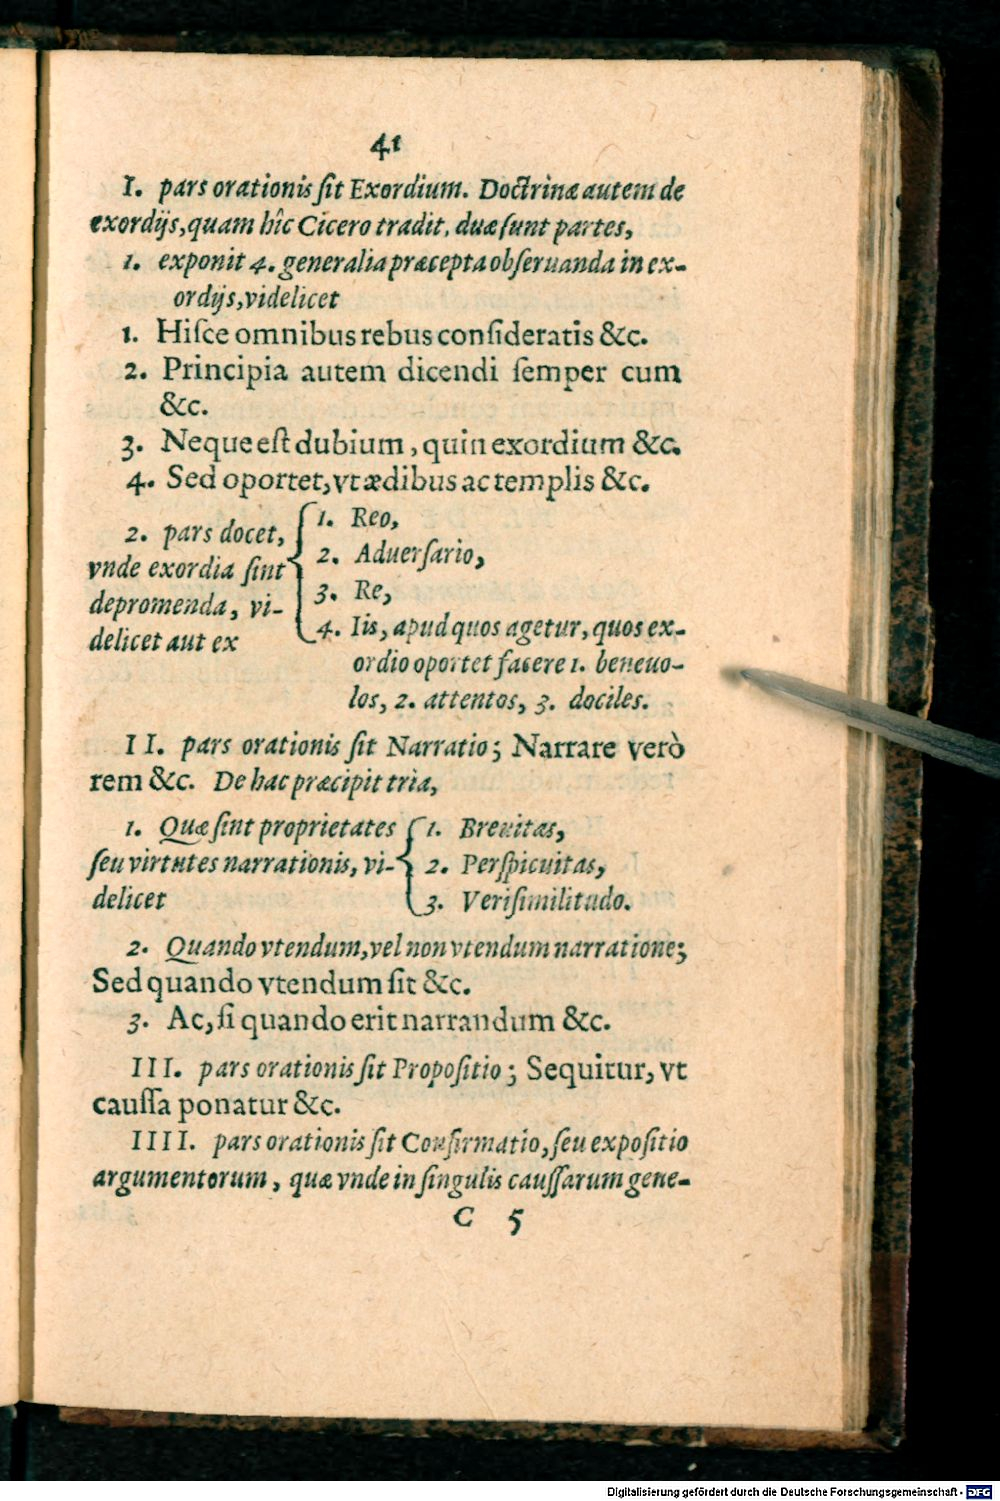 41
I. pars orationis ſit Exordium. Doctrinæ autem de
exordijs, quam hîc Cicero tradit, duæ ſunt partes,
1. exponit 4. generalia præcepta obſeruanda in ex-
ordijs, videlicet
1. Hiſce omnibus rebus conſideratis &c.
2. Principia autem dicendi ſemper cum
&c.
3. Neque eſt dubium, quin exordium &c.
4. Sed oportet, vt ædibus ac templis &c.
2. pars docet,
vnde exordia ſint
depromenda, vi-
delicet aut ex
1. Reo,
2. Aduerſario,
3. Re,
4. Iis, apud quos agetur, quos ex-
ordio oportet facere 1. beneuo-
los, 2. attentos, 3. dociles.
II. pars orationis ſit Narratio; Narrare verò
rem &c. De hac præcipit tria,
1. Quæ ſint proprietates
ſeu virtutes narrationis, vi-
delicet
1. Breuitas,
2. Perſpicuitas,
3. Veriſimilitudo.
2. Quando vtendum, vel non vtendum narratione;
Sed quando vtendum ſit &c.
3. Ac, ſi quando erit narrandum &c.
III. pars orationis ſit Propoſitio; Sequitur, vt
cauſſa ponatur &c.
IIII. pars orationis ſit Confirmatio, ſeu expoſitio
argumentorum, quæ vnde in ſingulis cauſſarum gene-
C 5
Digitalisierung gefördert durch die Deutsche Forschungsgemeinschaft - DFG